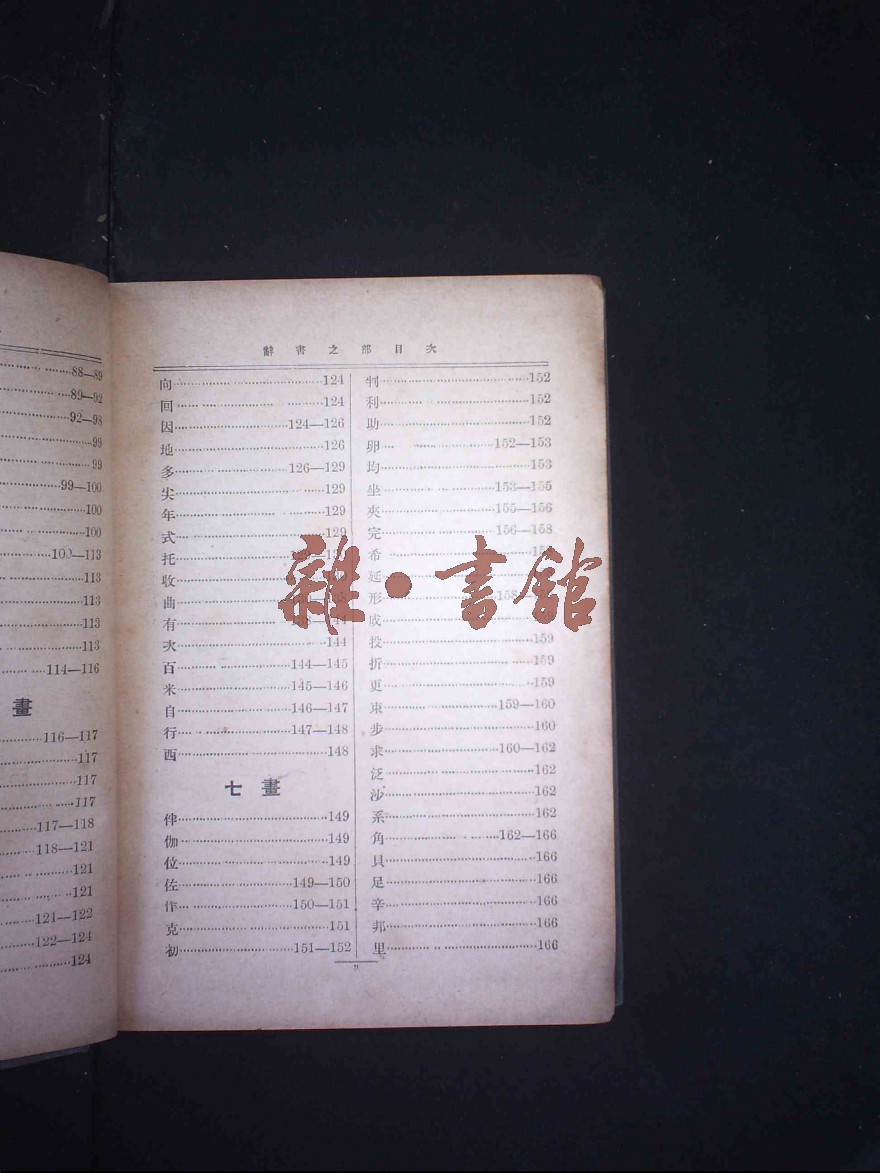 88—89
89—92
92—98
99
99
99—100
100
100
100—113
113
113
113
113
114—116
畫
116—117
117
117
117
117—118
118—121
121
121
121—122
122—124
124
辭書之部目次
向 124
回 124
因 124—126
地 126
多 126—129
尖 129
年 129
式 129
托
收
曲
有
次 144
百 144—145
米 145—146
自 146—147
行 147—148
西 148
七畫
伴 149
伽 149
位 149
佐 149—150
作 150—151
克 151
初 151—152
判 152
利 152
助 152
卵 152—153
均 153
坐 153—155
夾 155—156
完 156—158
希
延
形 158
成
投 159
折 159
更 159
束 159—160
步 160
求 160—162
泛 162
沙 162
系 162
角 162—166
貝 166
足 166
辛 166
邦 166
里 166
雜·書館